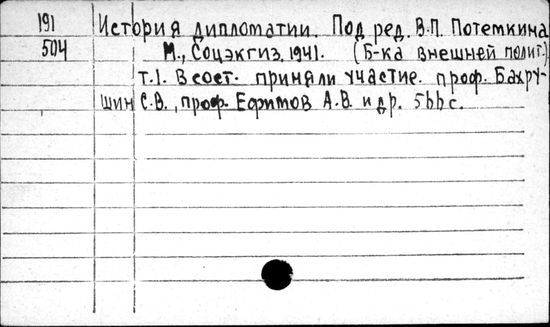 191 История дипломатии. Под ред. В.П. Потемкина
504 М., Соцэкгиз, 1941. (Б-ка внешней полит.).
т.1. В сост. приняли участие. проф. Бахру-
шин С.В., проф. Ефимов А.В. и др. 566 с.